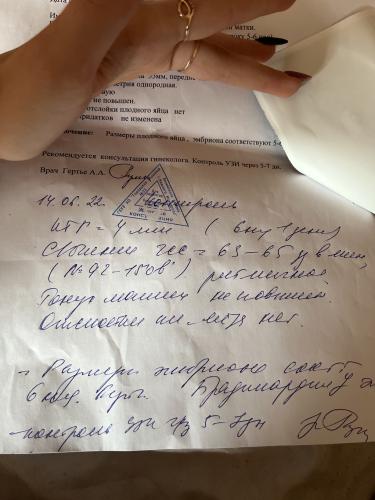 матки.
5-6 нед
35мм, передне
метрия однородная.
не повышен.
отслойки плодного яйца нет
придатков не изменена
Размеры плодного яйца , эмбриона соответствуют 5-
Рекомендуется консультация гинеколога. Контроль УЗИ через 5-7 дн.
Врач Гертье А.А.
14.06.22. контроль
КТР = 4 мм (6 нед 1 день)
ЧСС = 63-65 уд в мин,
(N 92-150в') ритмичное
Тонус матки не повышен.
Отслойки пл. яйца нет.
- Размеры эмбриона соотв
6 нед. Брадикардия у э
- контроль УЗИ чрз 5-7дн